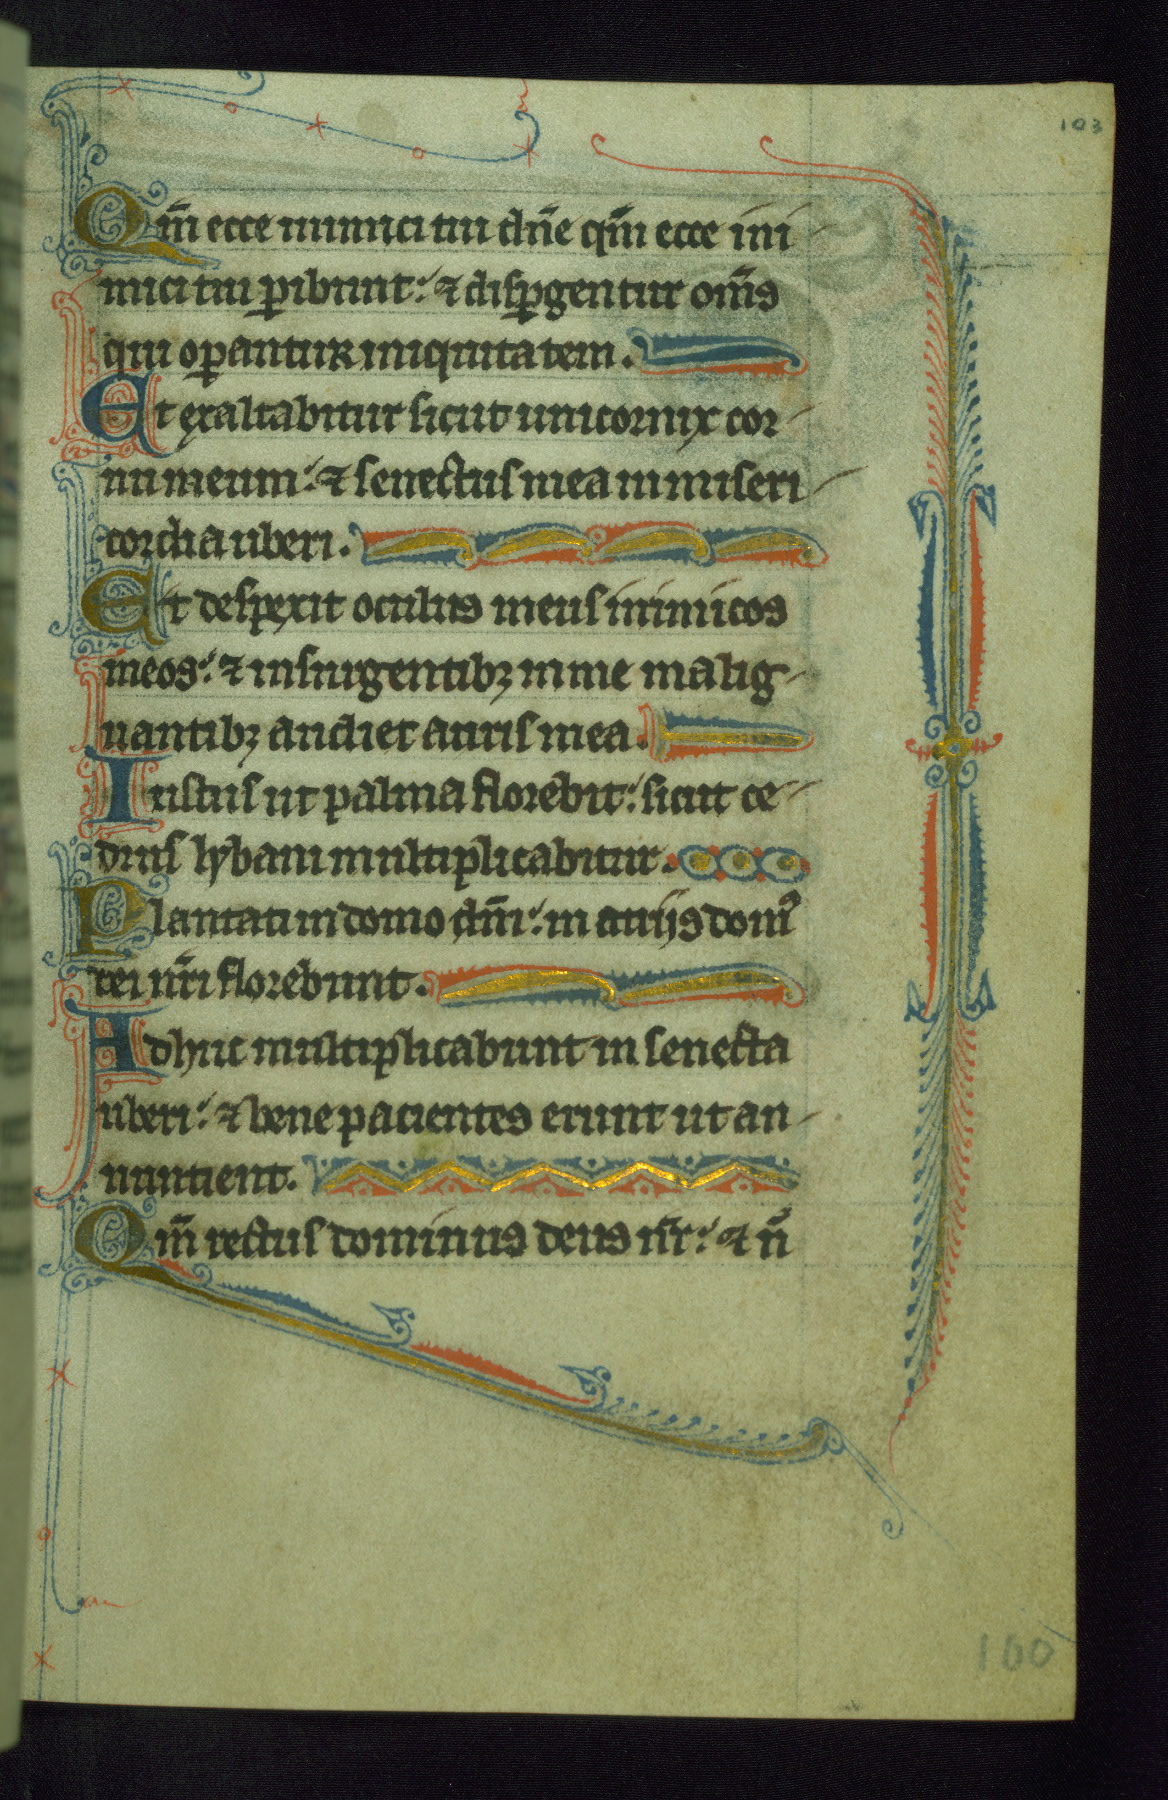 103
Qm̅ ecce inimici tui dn̅e qm̅ ecce ini
mici tui p̲ibunt: ⁊ disp̲gentur om̅s
qui op̲antur iniquitatem.
Et exaltabitur sicut unicornix cor
nu meum: ⁊ senectus mea in miseri
cordia uberi.
Et despexit oculus meus inimicos
meos: ⁊ insurgentibꝫ in me malig
nantibꝫ audiet auris mea.
Iustus ut palma florebit: sicut ce
drus lybani multiplicabitur.
Plantati in domo dn̅i: in atrijs dom᷒
dei nr̅i florebunt.
Adhuc multiplicabunt in senecta
uberi: ⁊ bene pacientes erunt ut an
nuntient.
Qm̅ rectus dominus deus nr̅: ⁊ n̅
100